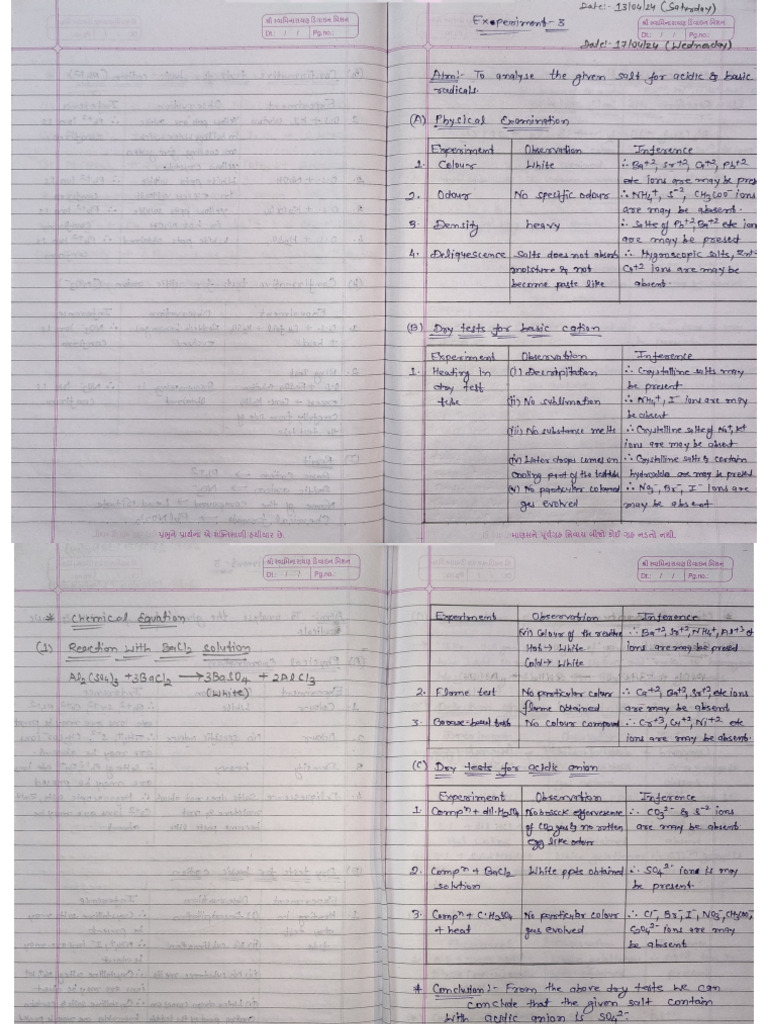 Date:- 13/04/24 (Saturday)
શ્રી સ્વામિનારાયણ ડિવાઇન મિશન
Dt.: / / Pg.no.:
Experiment-3
શ્રી સ્વામિનારાયણ ડિવાઇન મિશન
Dt.: / / Pg.no.:
Date:- 17/04/24 (Wednesday)
Aim:- To analyse the given salt for acidic & basic
radicals.
(A) Physical Examination
Experiment Observation Inference
1. Colour White ∴ Ba+2, Sr+2, Ca+2, Pb+2
etc ions are may be pres
2. Odour No specific odour ∴ NH4+, S-2, CH3COO- ions
are may be absent.
3. Density heavy ∴ Salts of Pb+2, Ba+2 etc ion
are may be presed
4. Deliquescence Salts does not absorb ∴ Hygroscopic salts, Zn+
moisture & not Ca+2 ions are may be
become paste like absent.
(B) Dry tests for basic cation
Experiment Observation Inference
1. Heating in (i) Decripitation ∴ Crystalline salts may
dry test be present
tube (ii) No sublimation ∴ NH4+, I- ions are may
be absent
(iii) No substance melts ∴ Crystalline salts of Na+, K+
ions are may be absent
(iv) Water drops comes on ∴ Crystalline salts & certain
cooling part of the testtube hydroxide are may be presed
(v) No particular coloured ∴ NO3-, Br-, I- ions are
gas evolved may be absent
પ્રભુને પ્રાર્થના એ શક્તિશાળી હથીયાર છે.
માણસને પૂર્વગ્રહ સિવાય બીજો કોઈ ગ્રહ નડતો નથી.
શ્રી સ્વામિનારાયણ ડિવાઇન મિશન
Dt.: / / Pg.no.:
શ્રી સ્વામિનારાયણ ડિવાઇન મિશન
Dt.: / / Pg.no.:
* Chemical Equation
(1) Reaction with BaCl2 solution
Al2(SO4)3 + 3BaCl2 ⟶ 3BaSO4 + 2AlCl3
(White)
Experiment Observation Inference
(vi) Colour of the residue ∴ Ba+2, Sr+2, NH4+, Al+3 et
Hot → White ions are may be presed
Cold → White
2. Flame test No particular colour ∴ Ca+2, Ba+2, Sr+2, etc ions
flame obtained are may be absent
3. Borax-bead test No colour compound ∴ Cr+3, Cu+2, Ni+2 etc
ions are may be absent.
(C) Dry tests for acidic anion
Experiment Observation Inference
1. Compn + dil. H2SO4 No brisck effervesense ∴ CO3 2- & S-2 ions
of CO2 gas & no rotten are may be absent.
egg like odour
2. Compn + BaCl2 White ppts obtained ∴ SO4 2- ions is may
solution be present.
3. Compn + C.H2SO4 No particular colour ∴ Cl-, Br-, I-, NO3-, CH3COO-,
+ heat gas evolved C2O4 2- ions are may
be absent
* Conclusion:- From the above dry tests we can
conclude that the given salt contain
with acidic anion is SO4 2-.